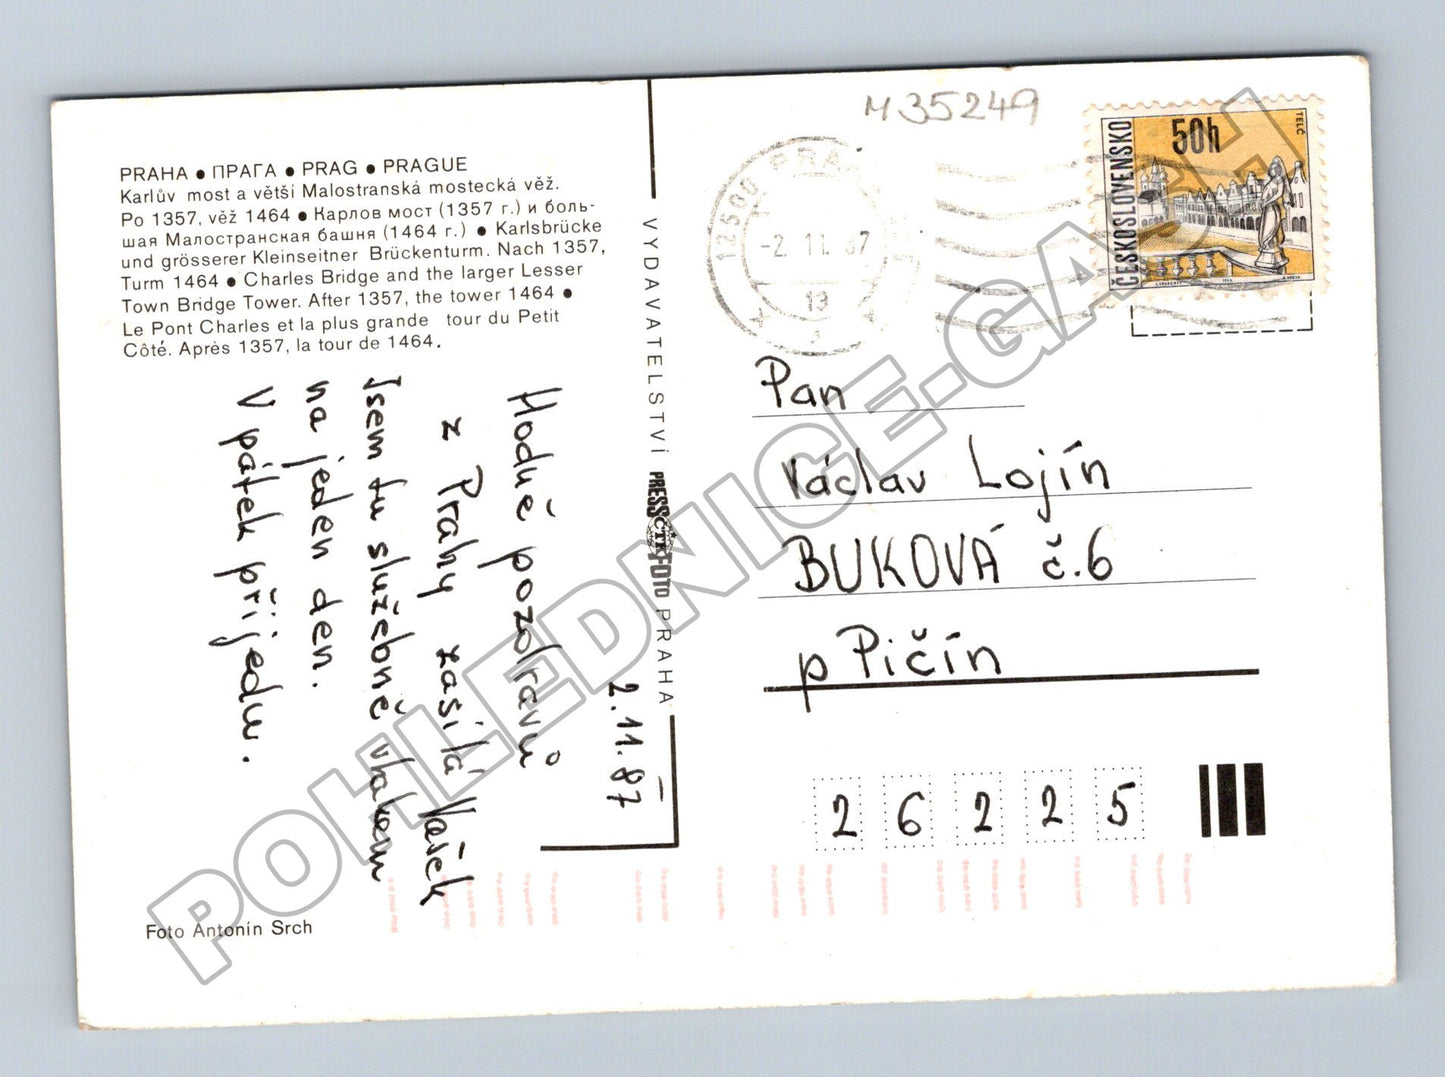 PRAHA ● ПРАГА ● PRAG ● PRAGUE
Karlův most a větší Malostranská mostecká věž.
Po 1357, věž 1464 ● Карлов мост (1357 г.) и боль-
шая Малостранская башня (1464 г.) ● Karlsbrücke
und grösserer Kleinseitner Brückenturm. Nach 1357,
Turm 1464 ● Charles Bridge and the larger Lesser
Town Bridge Tower. After 1357, the tower 1464 ●
Le Pont Charles et la plus grande tour du Petit
Côté. Après 1357, la tour de 1464.
Hodně pozdravů
z Prahy zasílá Vašek
Jsem tu služebně vlakem
na jeden den.
V pátek přijedu.
2.11.87
Foto Antonín Srch
VYDAVATELSTVÍ PRESSFOTO PRAHA
ČTK
M 35249
12500 PRAHA
-2.11.87
13
ČESKOSLOVENSKO
50h
TELČ
Pan
Václav Lojín
BUKOVÁ č.6
p Pičín
26225
POHLEDNICE-GALASH